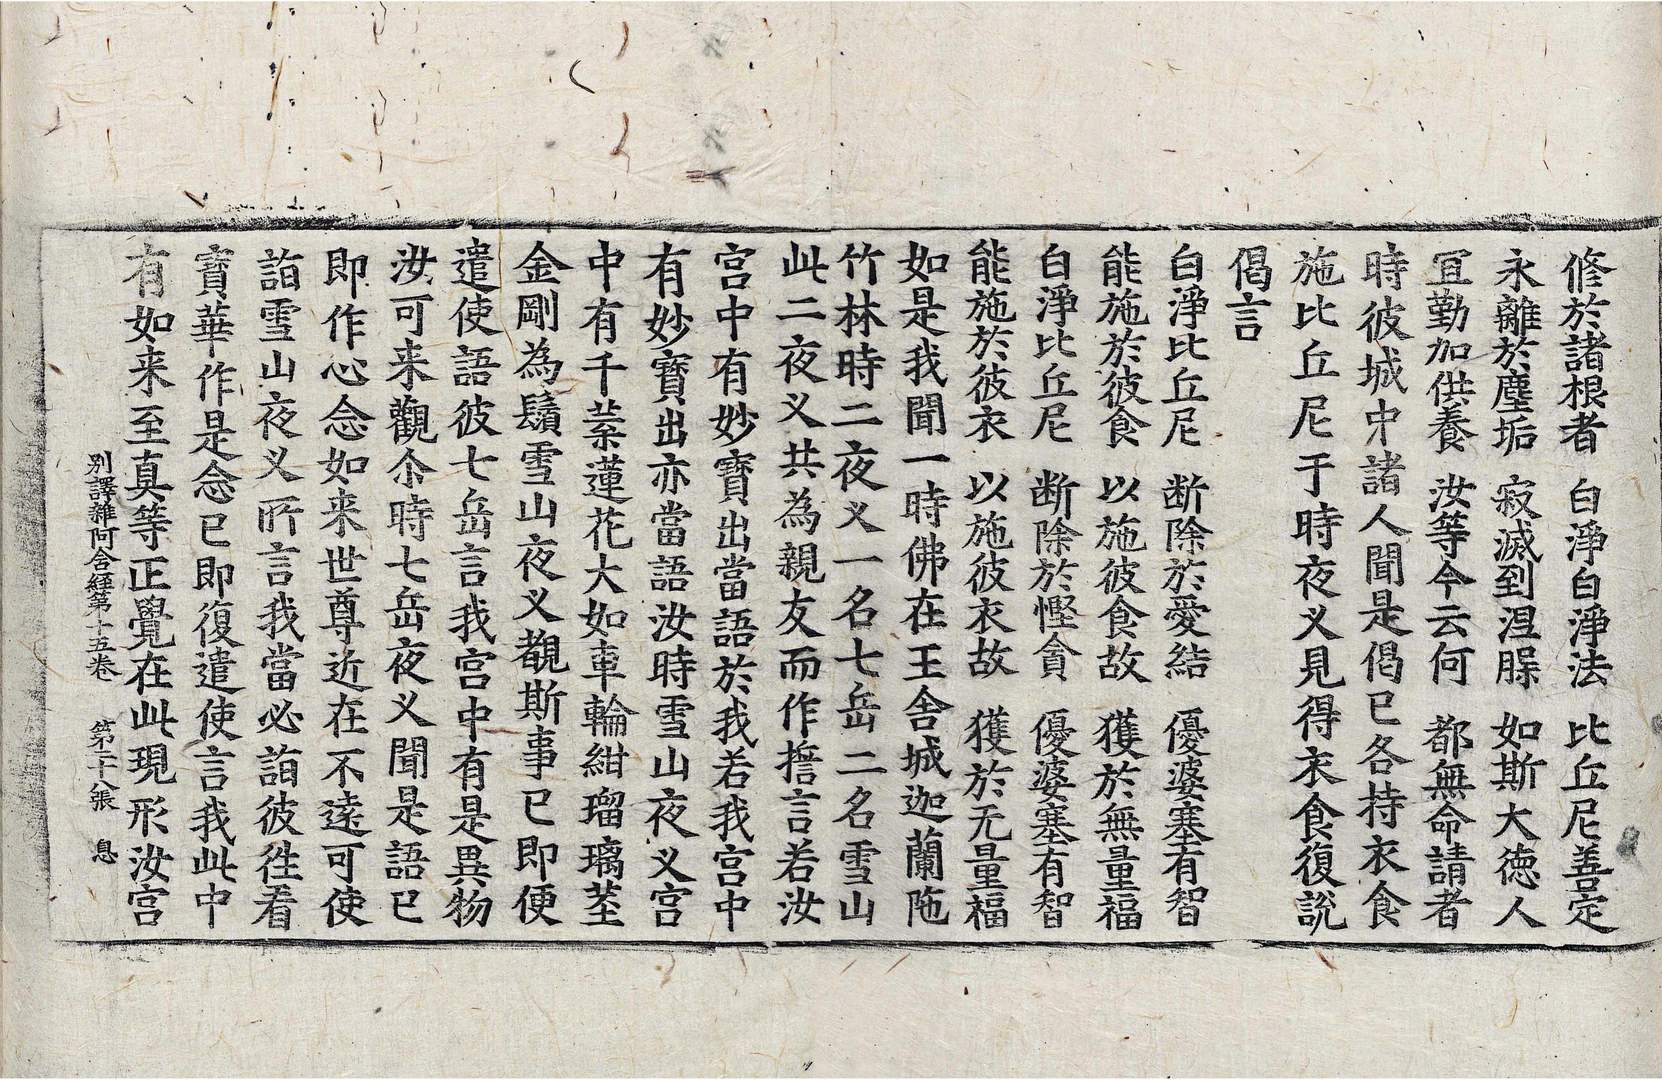 修於諸根者　白淨白淨法　比丘尼善定
永離於塵垢　寂滅到涅脲　如斯大德人
冝勤加供養　汝等今云何　都無命請者
時彼城中諸人聞是偈已各持衣食
施比丘尼于時夜叉見得衣食復說
偈言
白淨比丘尼　断除於愛結　優婆塞有智
能施於彼食　以施彼食故　獲於無量福
白淨比丘尼　断除於慳貪　優婆塞有智
能施於彼衣　以施彼衣故　獲於无量福
如是我聞一時佛在王舍城迦蘭陁
竹林時二夜叉一名七岳二名雪山
此二夜叉共為親友而作擔言若汝
宮中有妙寶出當語於我若我宮中
有妙寶出亦當語汝時雪山夜叉宮
中有千葉蓮花大如車輪紺瑠璃莖
金剛為鬚雪山夜叉覩斯事已即便
遣使語彼七岳言我宮中有是異物
汝可来觀尒時七岳夜叉聞是語已
即作心念如来世尊近在不遠可使
詣雪山夜叉所言我當必詣彼徃看
寶華作是念已即復遣使言我此中
有如来至真等正覺在此現形汝宮
別譯雜阿含經第十五卷　第二十八張　息